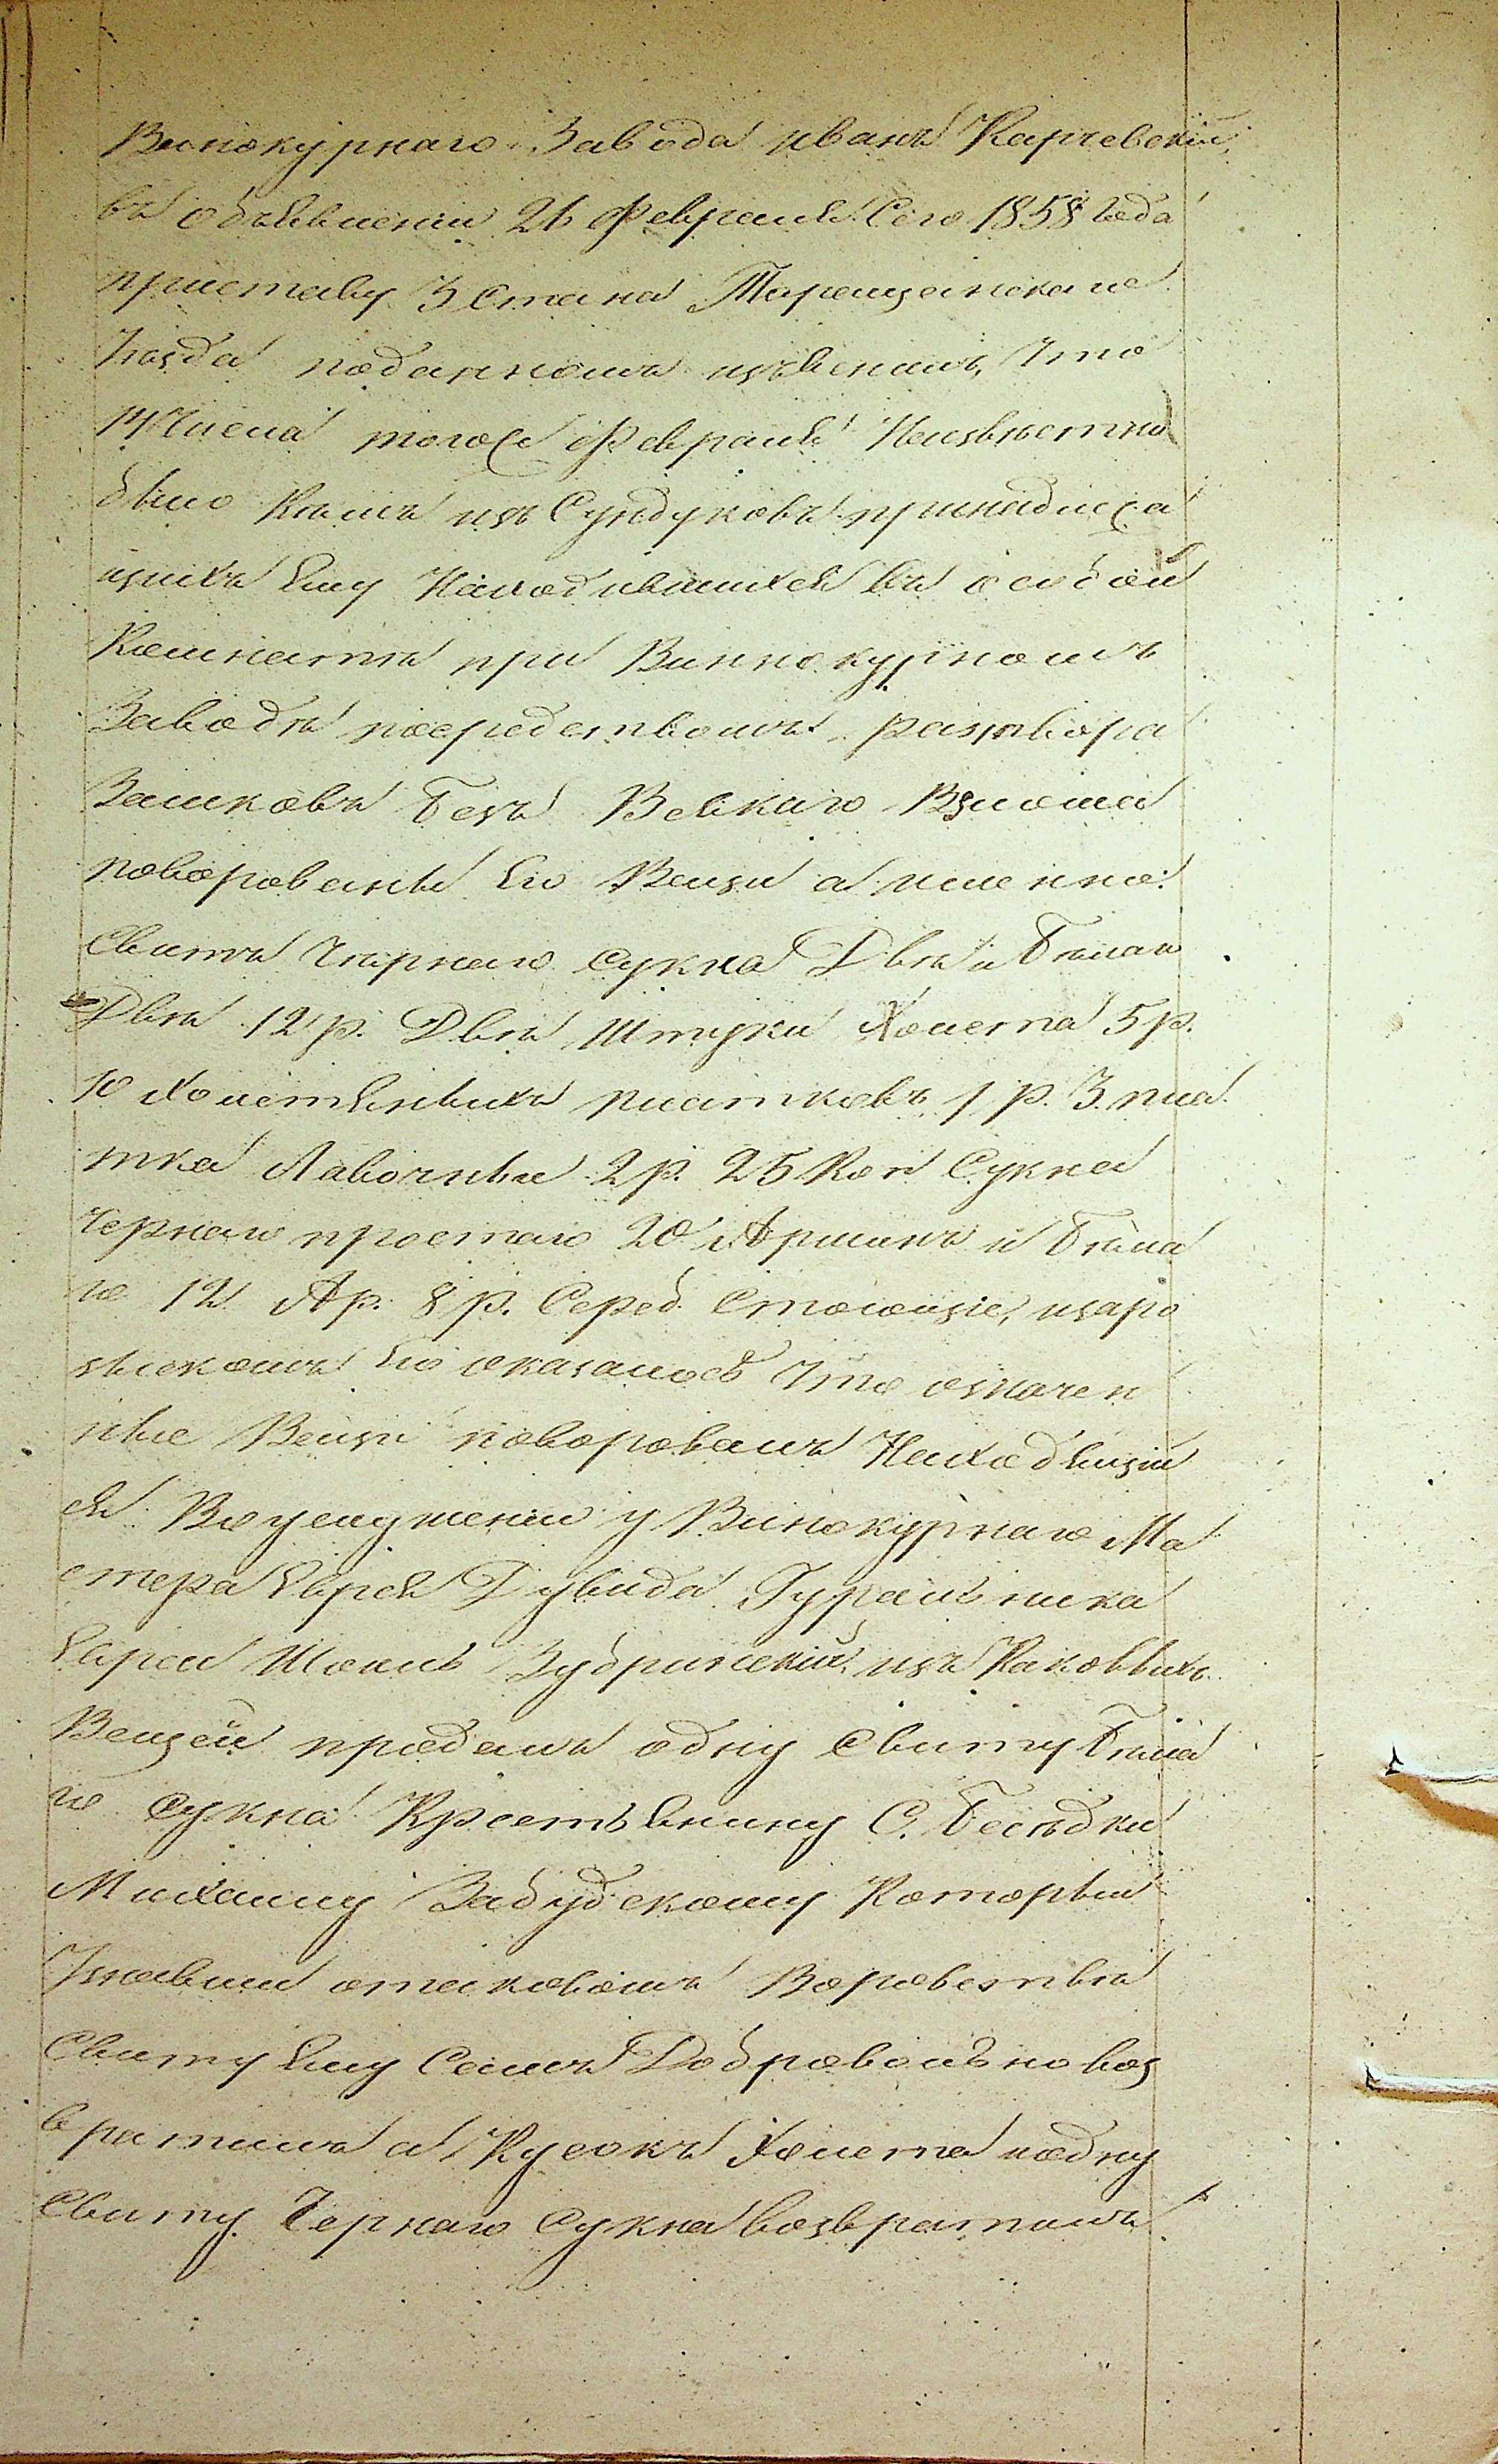 Винокурнаго Завода иванъ Карчевскій,
въ объявленіи 26 Февраля Сего 1858 года
приставу 3 Стана Таращанскаго
Уезда поданномъ изъяснилъ, что
14 Числа тогоже Февраля Неизвѣстно
было Кѣмъ изъ Сундуковъ принадлежа
щихъ Ему Находившихся въ особой
Комнатѣ при Виннокурномъ
Заводѣ посредствомъ, разтвора
Замковъ безъ Всякаго Взлома
поворованы Его Вещи а именно:
Свитъ Чернаго Сукна Двѣ и бѣлаго
Двѣ 12 р. Двѣ Штуки Холста 5 р.
10 Холстяныхъ платковъ 1 р. 3 пла
тка Лавочные 2 р. 25 Коп Сукна
чернаго простаго 20 Аршинъ и бѣла
го 12 Ар. 8 р. Сереб. Стоющіе, израз
ыскомъ Его оказалось Что означен
ные Вещи поворовалъ Находящій
ся Воуслуженіи у Винокурнаго Ма
стера Еврея Дувида Гуральника
Еврей Шоель Зубринскій, изъ Каковыхъ
Вещей продалъ одну Свиту бѣла
го Сукна Крестьянину С. Бесѣдки
Михаилу Забудскому Который
Узнавши отаковомъ Воровствѣ
Свиту Ему Самъ Добровольно воз
вратилъ а Кусокъ Холста иодну
Свиту Чернаго Сукна возвратилъ